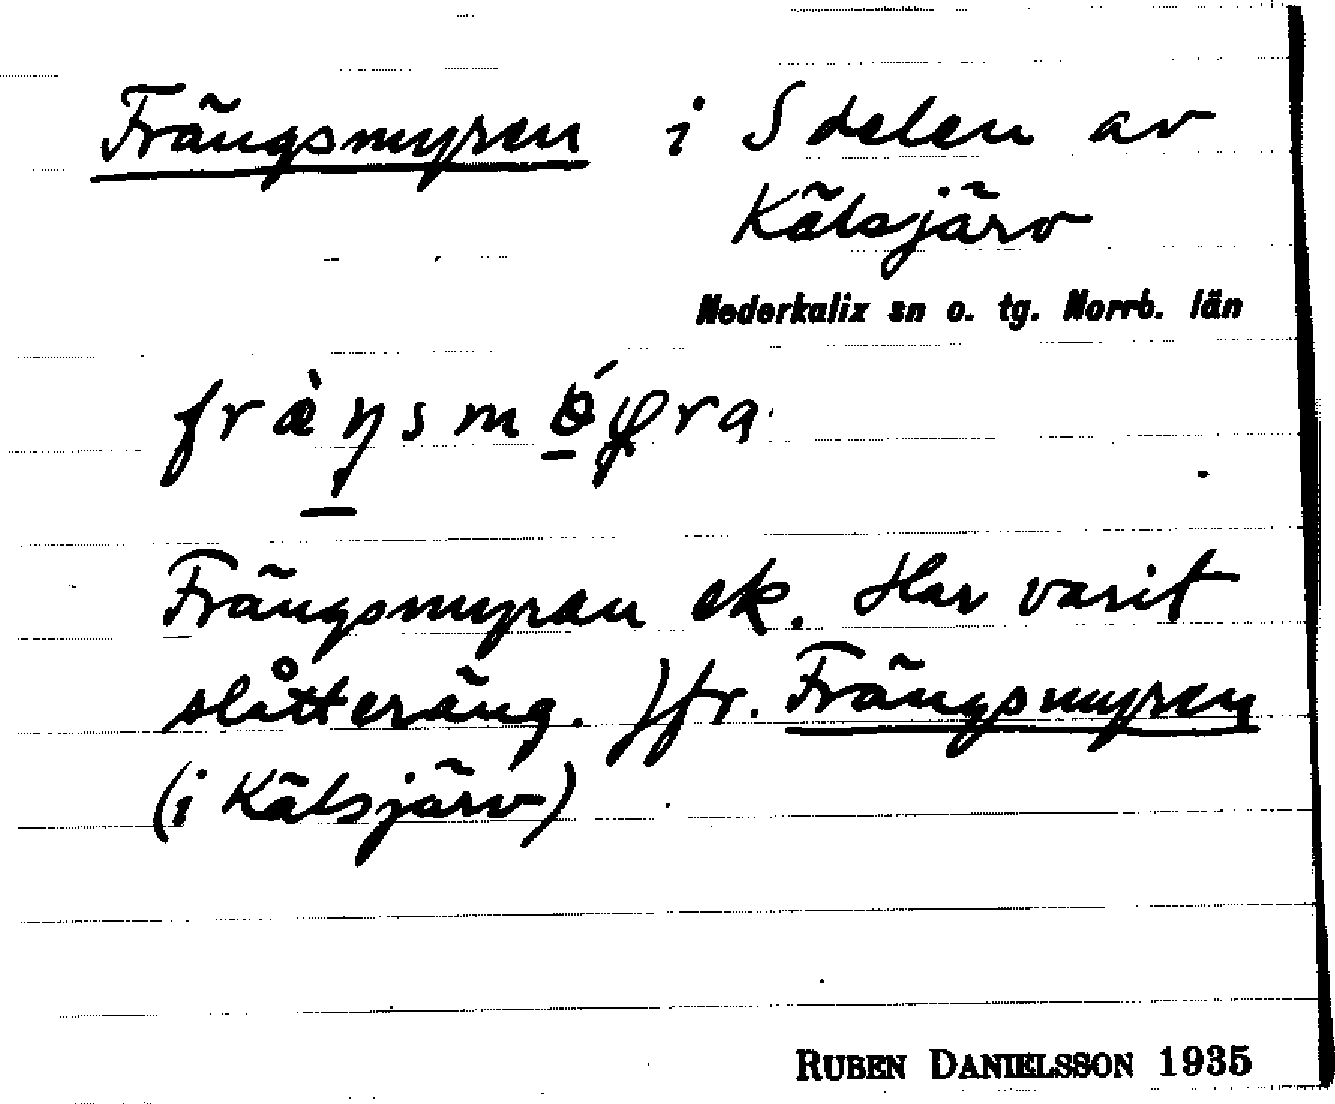 Frängsmyren i S delen av
Kälsjärv
Nederkalix sn o. tg. Norrb. län
Frängsmyran ek. Har varit
slåtteräng. Jfr. Frängsmyren
(i Kälsjärv)
RUBEN DANIELSSON 1935